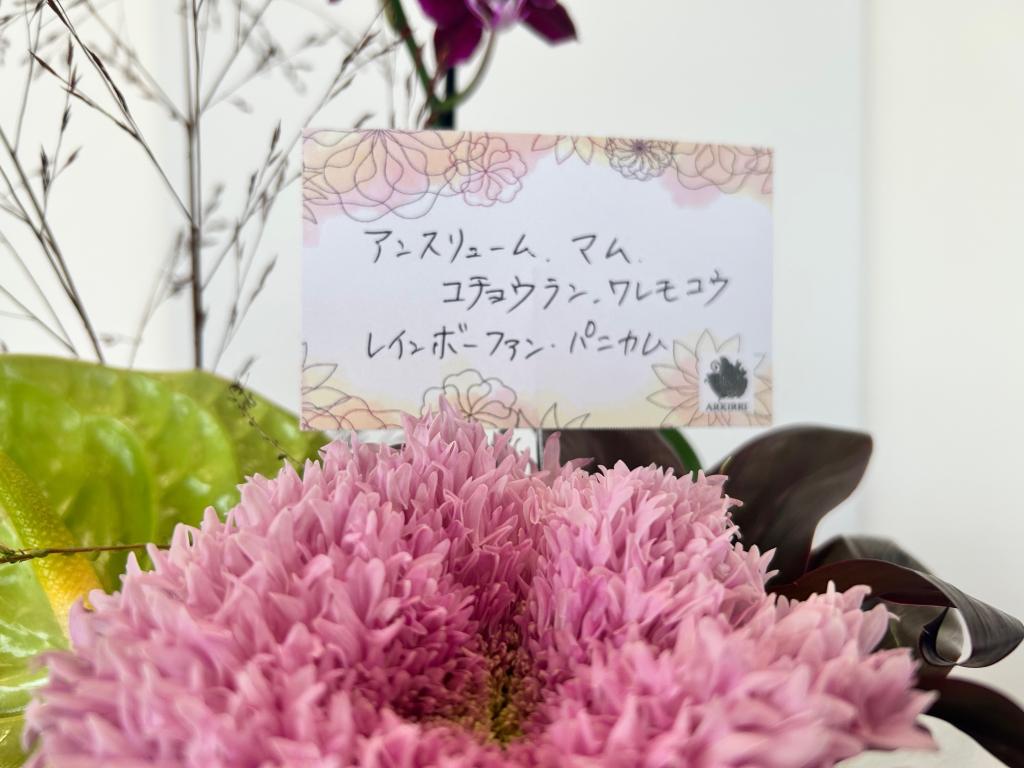 アンスリューム、マム、
コチョウラン、ワレモコウ
レインボーファン・パニカム
ARKIRKI